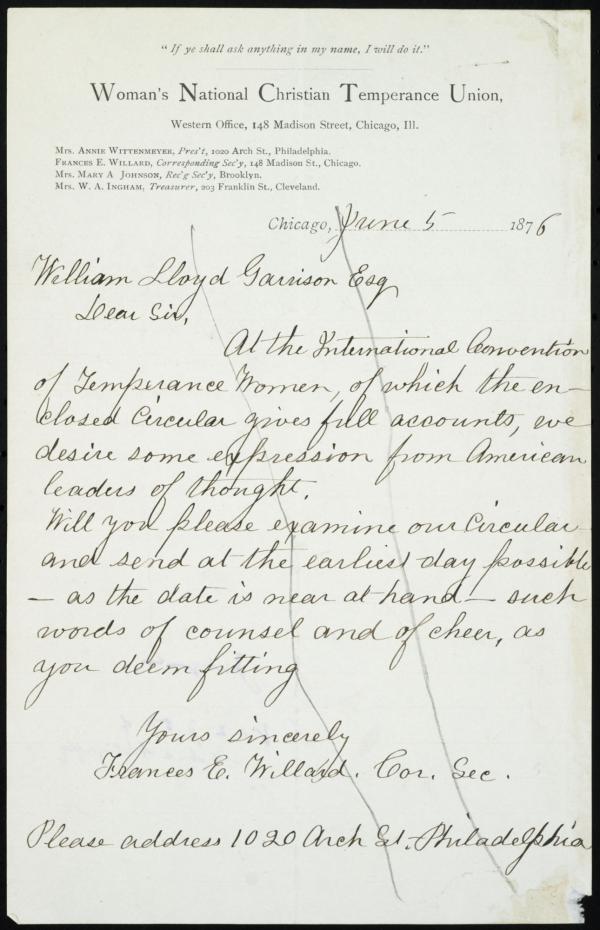 "If ye shall ask anything in my name, I will do it."
Woman's National Christian Temperance Union,
Western Office, 148 Madison Street, Chicago, Ill.
Mrs. Annie Wittenmeyer, Pres't, 1020 Arch St., Philadelphia.
Frances E. Willard, Corresponding Sec'y, 148 Madison St., Chicago.
Mrs. Mary A Johnson, Rec'g Sec'y, Brooklyn.
Mrs. W. A. Ingham, Treasurer, 203 Franklin St., Cleveland.
Chicago, June 5 1876
William Lloyd Garrison Esq
Dear Sir,
At the International Convention
of Temperance Women, of which the en-
closed Circular gives full accounts, we
desire some expression from American
leaders of thought.
Will you please examine our Circular
and send at the earliest day possible
- as the date is near at hand - such
words of counsel and of cheer, as
you deem fitting
Yours sincerely
Frances E. Willard. Cor. Sec.
Please address 1020 Arch St. Philadelphia